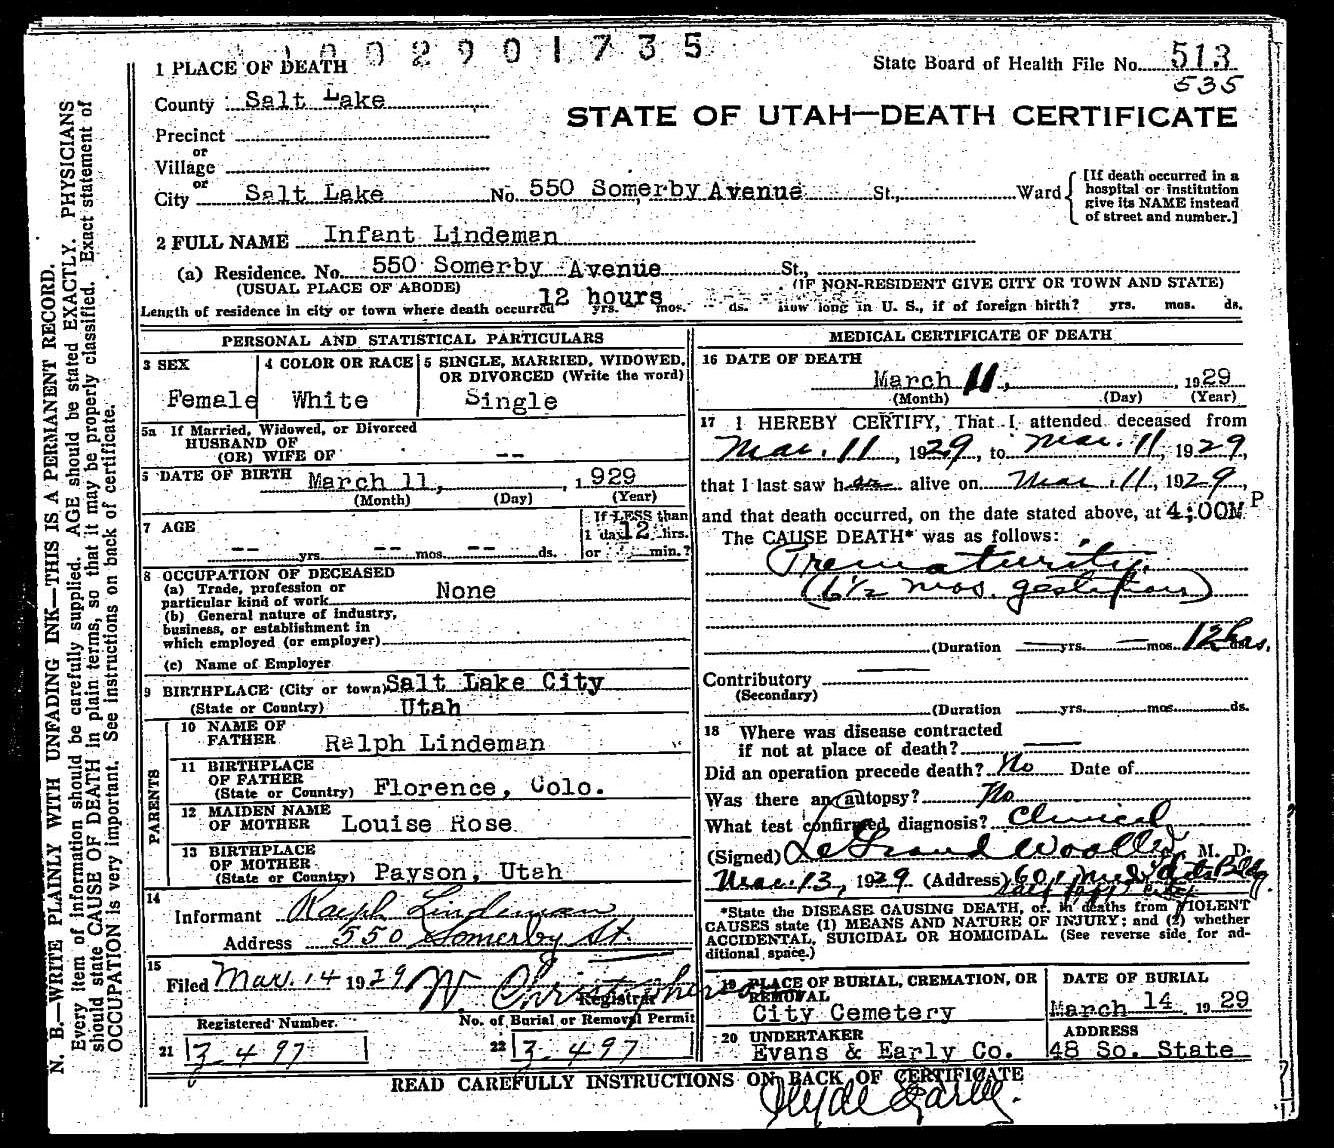 1002901735
1 PLACE OF DEATH
State Board of Health File No. 513
535
County Salt Lake
STATE OF UTAH—DEATH CERTIFICATE
Precinct
or
Village
or
City Salt Lake No. 550 Somerby Avenue St., Ward
[If death occurred in a
hospital or institution
give its NAME instead
of street and number.]
2 FULL NAME Infant Lindeman
(a) Residence. No. 550 Somerby Avenue St.,
(USUAL PLACE OF ABODE) (IF NON-RESIDENT GIVE CITY OR TOWN AND STATE)
Length of residence in city or town where death occurred 12 hours yrs. mos. ds. How long in U. S., if of foreign birth? yrs. mos. ds.
PERSONAL AND STATISTICAL PARTICULARS
3 SEX
Female
4 COLOR OR RACE
White
5 SINGLE, MARRIED, WIDOWED,
OR DIVORCED (Write the word)
Single
5a If Married, Widowed, or Divorced
HUSBAND OF
(OR) WIFE OF --
6 DATE OF BIRTH March 11, 1929
(Month) (Day) (Year)
7 AGE
-- yrs. -- mos. -- ds.
If LESS than
1 day 12 hrs.
or min.?
8 OCCUPATION OF DECEASED
(a) Trade, profession or
particular kind of work None
(b) General nature of industry,
business, or establishment in
which employed (or employer)
(c) Name of Employer
9 BIRTHPLACE (City or town) Salt Lake City
(State or Country) Utah
PARENTS
10 NAME OF
FATHER Ralph Lindeman
11 BIRTHPLACE
OF FATHER
(State or Country) Florence, Colo.
12 MAIDEN NAME
OF MOTHER Louise Rose
13 BIRTHPLACE
OF MOTHER
(State or Country) Payson, Utah
14
Informant Ralph Lindeman
Address 550 Somerby St.
15
Filed Mar. 14 1929 W Christopherson
Registrar
Registered Number. No. of Burial or Removal Permit
21 3497 22 3497
MEDICAL CERTIFICATE OF DEATH
16 DATE OF DEATH
March 11, 1929
(Month) (Day) (Year)
17 I HEREBY CERTIFY, That I attended deceased from
Mar. 11, 1929, to Mar. 11, 1929,
that I last saw her alive on Mar. 11, 1929,
and that death occurred, on the date stated above, at 4:00M P
The CAUSE DEATH* was as follows:
Prematurity.
(6½ mos. gestation)
(Duration — yrs. — mos. 12 hrs. ds.
Contributory —
(Secondary)
(Duration yrs. mos. ds.
18 Where was disease contracted
if not at place of death? —
Did an operation precede death? No Date of
Was there an autopsy? No
What test confirmed diagnosis? Clinical
(Signed) LeGrand Woolley, M. D.
Mar. 13, 1929 (Address) Bldg.
*State the DISEASE CAUSING DEATH, or in deaths from VIOLENT
CAUSES state (1) MEANS AND NATURE OF INJURY; and (2) whether
ACCIDENTAL, SUICIDAL OR HOMICIDAL. (See reverse side for ad-
ditional space.)
19 PLACE OF BURIAL, CREMATION, OR
REMOVAL
City Cemetery
DATE OF BURIAL
March 14 1929
20 UNDERTAKER
Evans & Early Co.
ADDRESS
48 So. State
READ CAREFULLY INSTRUCTIONS ON BACK OF CERTIFICATE
Clyde Early.
N. B.—WRITE PLAINLY WITH UNFADING INK—THIS IS A PERMANENT RECORD.
Every item of information should be carefully supplied. AGE should be stated EXACTLY. PHYSICIANS
should state CAUSE OF DEATH in plain terms, so that it may be properly classified. Exact statement of
OCCUPATION is very important. See instructions on back of certificate.